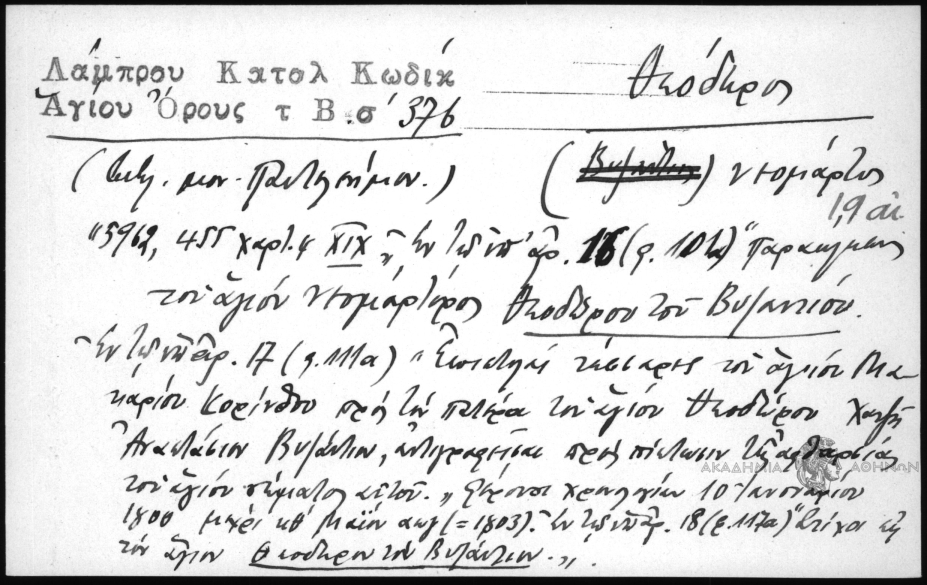 Λάμπρου Κατολ Κωδικ
Ἁγίου Ὄρους τ Β σ' 376
Θεόδωρος
(Βιβλ. μον. Παντελεήμον.)
(Βυζάντιος) νεομάρτυς
19 αἰ.
"5962, 455 χαρτ. 4 XIX „ Ἐν τῷ ὑπ' ἀρ. 16 (φ. 10
τοῦ ἁγίου νεομάρτυρος Θεοδώρου τοῦ Βυζαντίου.
Ἐν τῷ ὑπ' ἀρ. 17 (φ. 111α) "Ἐπιστολαὶ τέσσαρες τοῦ ἁγίου Μα-
καρίου Κορίνθου πρὸς τὸν πατέρα τοῦ ἁγίου Θεοδώρου Χατζῆ
Ἀναστάσιον Βυζάντιον, ἀντιγραφεῖσαι πρὸς πίστωσιν τῆς ἀφθαρσίας
τοῦ ἁγίου σώματος αὐτοῦ. „ χρονολογίαν 10 Ἰανουαρίου
1800 μέχρι κθ' Μαΐου αωγ (=1803). Ἐν τῷ ὑπ' ἀρ. 18 (φ. 117α) "Στίχοι εἰς
τὸν ἅγιον Θεόδωρον τὸν Βυζάντιον. „.
ΑΚΑΔΗΜΙΑ ΑΘΗΝΩΝ